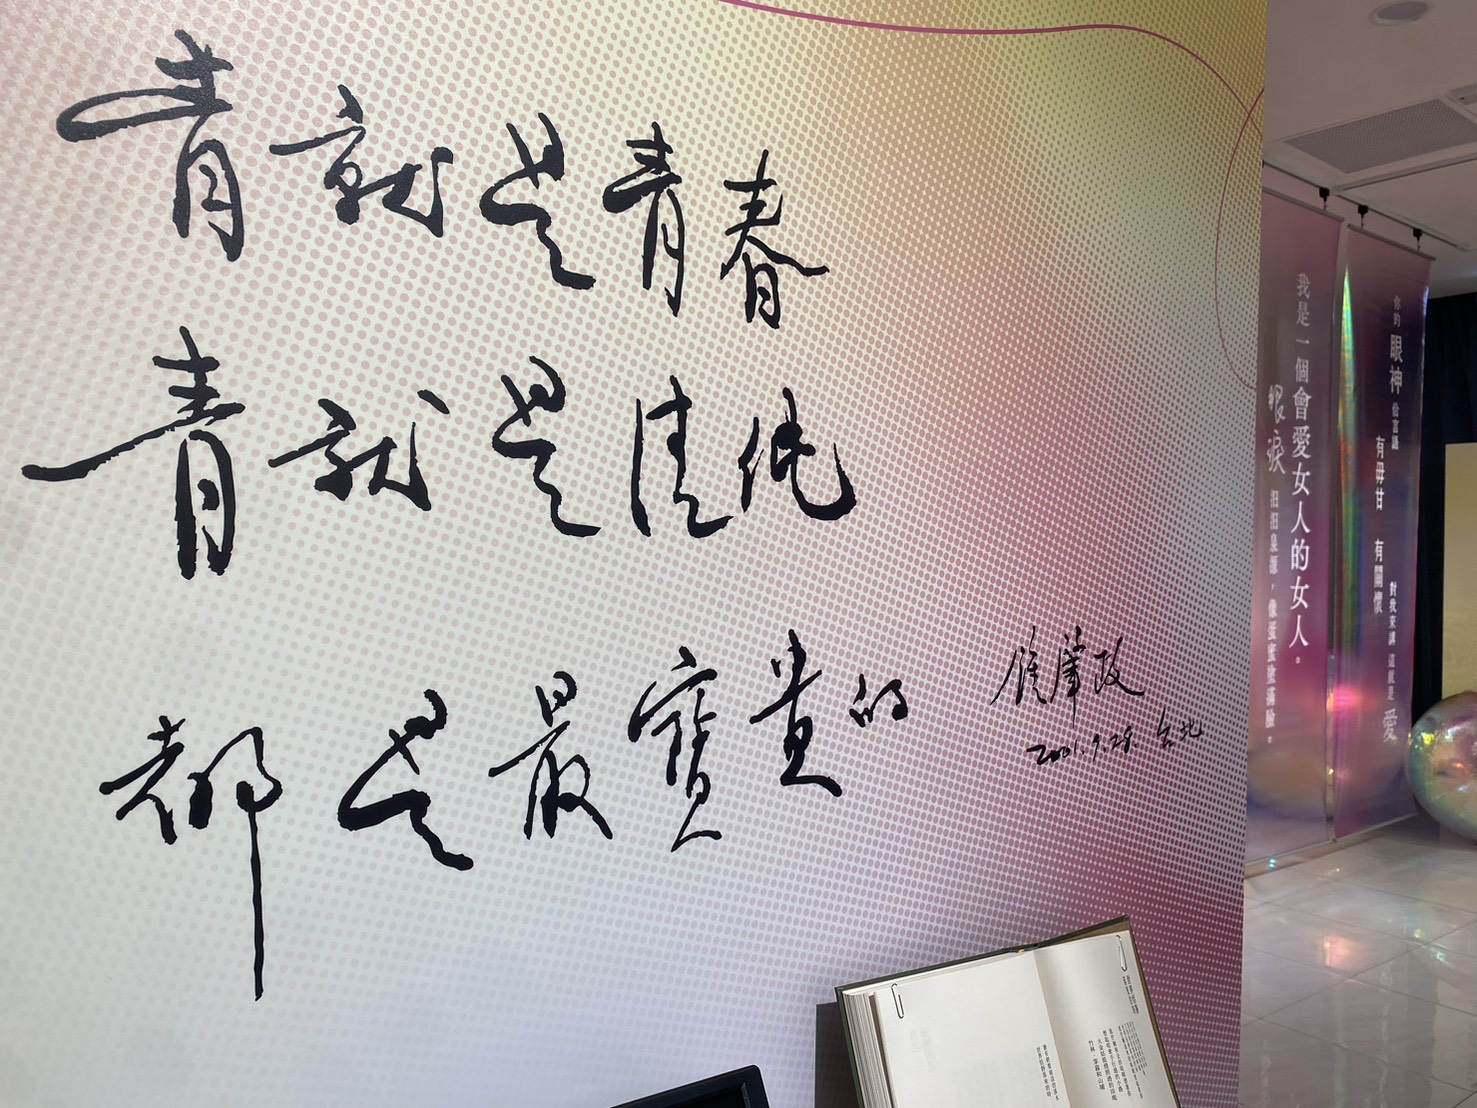 青就是青春
青就是清純
都是最寶貴的
2021.9.28. 台北
我是一個會愛女人的女人。
眼淚 汩汩泉源，像蛋蜜塗滿臉。
你的眼神佮言語
有毋甘 有關懷
對我來講 這就是愛